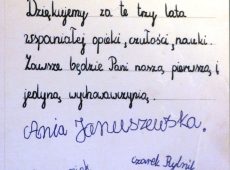 Dziękujemy za te trzy lata
wspaniałej opieki, czułości, nauki.
Zawsze będzie Pani naszą pierwszą i
jedyną wychowawczynią.
Ania Januszewska.
Czarek